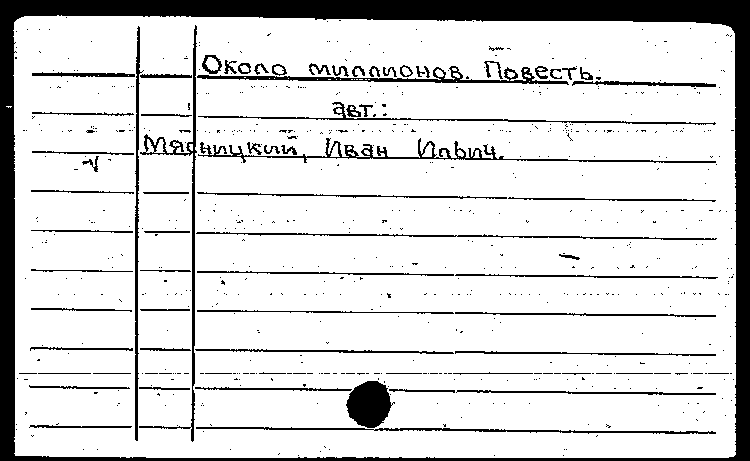 Около миллионов. Повесть.
авт.:
Мясницкий, Иван Ильич.